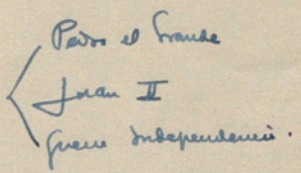 Pedro el Grande
Juan II
Guerra Independencia.